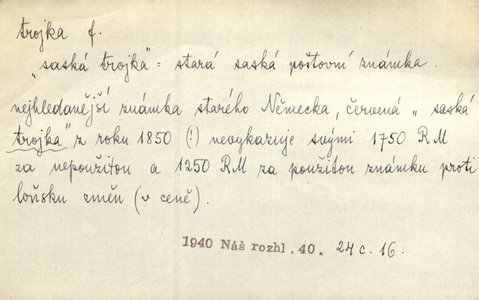 trojka f.
„saská trojka" = stará saská poštovní známka.
nejhledanější známka starého Německa, červená „saská
trojka" z roku 1850 (!) nevykazuje svými 1750 RM
za nepoužitou a 1250 RM za použitou známku proti
loňsku změn (v ceně).
1940 Náš rozhl. 40. 24 c. 16.